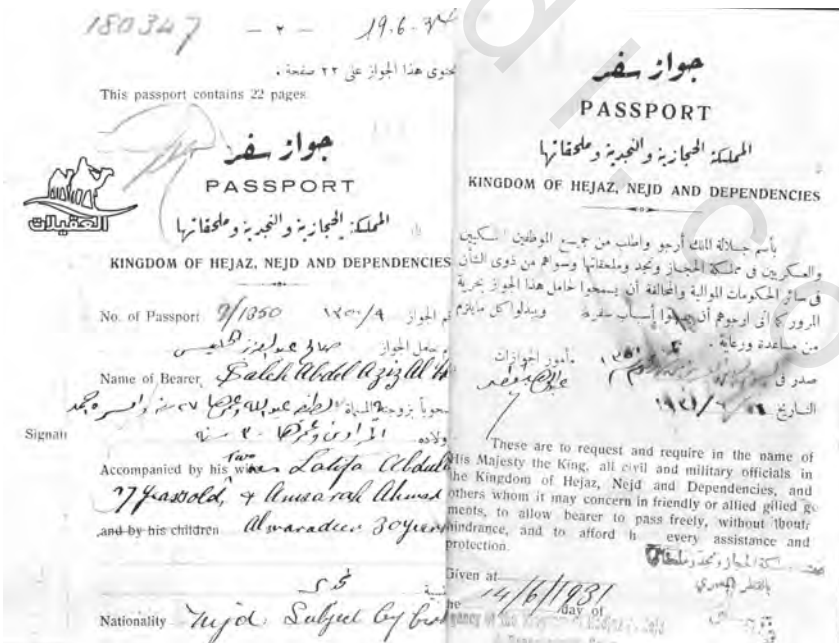 180347 - ٢ - 19.6.34
يحتوى هذا الجواز على ٢٢ صفحة .
This passport contains 22 pages
جواز سفر
PASSPORT
المملكة الحجازية والنجدية وملحقاتها
KINGDOM OF HEJAZ, NEJD AND DEPENDENCIES
العقيلات
No. of Passport 9/1350 ١٣٥٠/٩ رقم الجواز
حامل الجواز صالح عبد العزيز
Name of Bearer, Saleh Abdel Aziz Al
بزوجته
سنه ٣٠ وعمرها
Signatu
Accompanied by his two wives Latifa Abdul
27 years old, & Amsarah Ahmad
and by his children Almaradeer 30 years
نجدى
Nationality Nejd. Subject by
جواز سفر
PASSPORT
المملكة الحجازية والنجدية وملحقاتها
KINGDOM OF HEJAZ, NEJD AND DEPENDENCIES
بأسم جلالة الملك أرجو واطلب من جميع الموظفين الملكيين
والعسكريين فى مملكة الحجاز ونجد وملحقاتها وسواهم من ذوى الشأن
فى سائر الحكومات الموالية والمحالفة أن يسمحوا لحامل هذا الجواز بحرية
المرور كما انى ارجوهم أن أسباب سفره ويبذلوا كل مايلزم
من مساعدة ورعاية .
مأمور الجوازات
صدر فى
التاريخ ١٩٣١/٦/
These are to request and require in the name of
His Majesty the King, all civil and military officials in
the Kingdom of Hejaz, Nejd and Dependencies, and
others whom it may concern in friendly or allied gilied go
ments, to allow bearer to pass freely, without thout
hindrance, and to afford h every assistance and
protection.
مملكة الحجاز ونجد وملحقاتها
بالقطر المصرى
Given at
the 14/6/1931 day of